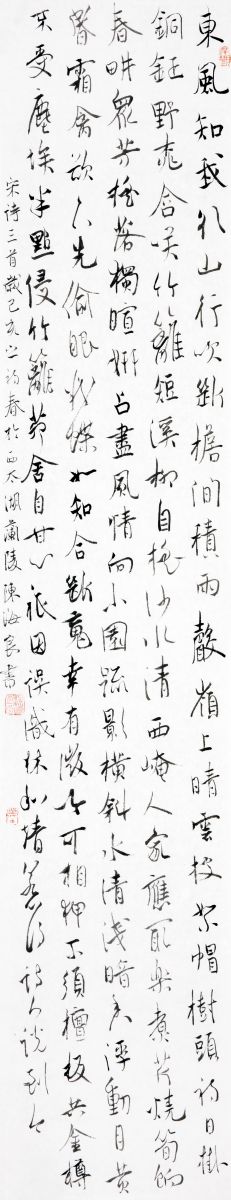 東風知我欲山行吹斷檐間積雨聲嶺上晴雲披絮帽樹頭初日掛
銅鉦野桃含笑竹籬短溪柳自搖沙水清西崦人家應最樂煮芹燒筍餉
春畊眾芳搖落獨暄妍占盡風情向小園疏影橫斜水清淺暗香浮動月黃
昏霜禽欲下先偷眼粉蝶如知合斷魂幸有微吟可相狎不須檀板共金樽
不受塵埃半點侵竹籬茆舍自甘心祇因誤識林和靖惹得詩人說到今
宋詩三首歲己亥之初春於西太湖蘭陵陳海良書